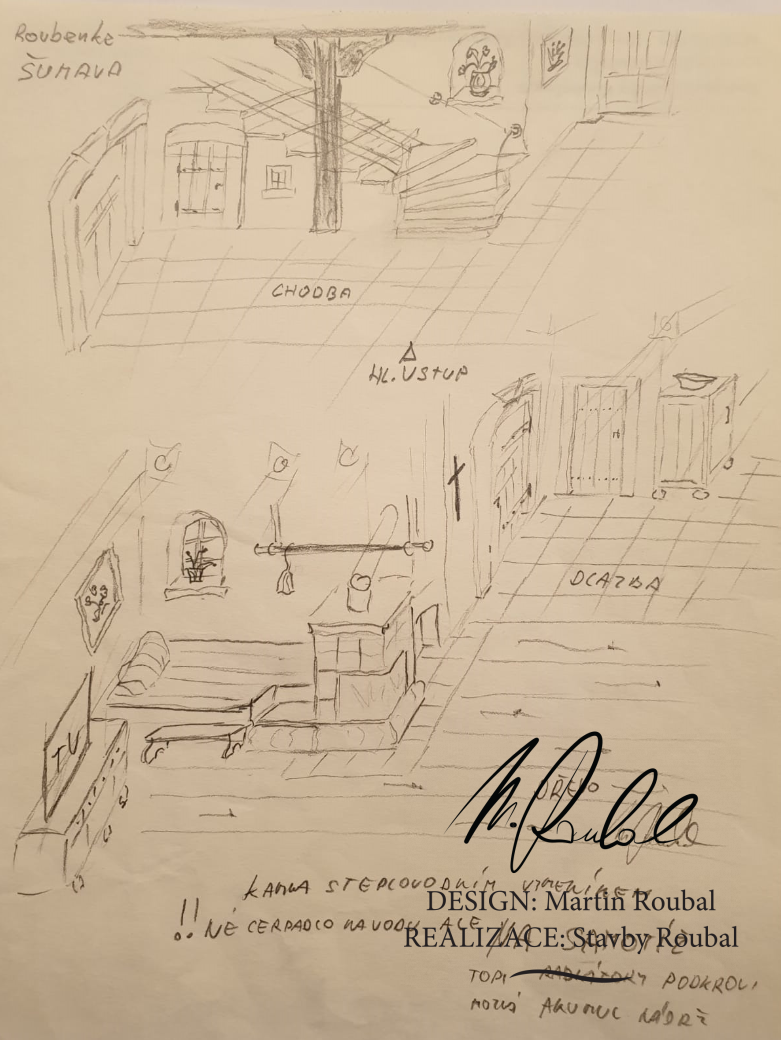 Roubenka
ŠUMAVA
CHODBA
HL. VSTUP
DLAŽBA
TV
DŘEVO
KAMNA S TEPLOVODNÍM VÝMĚNÍKEM
!! NE ČERPADLO NA VODU ALE NA SAMOTÍŽ
DESIGN: Martin Roubal
REALIZACE: Stavby Roubal
TOPÍ RADIÁTORY PODKROVÍ
MOŽNÁ AKUMUL NÁDRŽ
M. Roubal